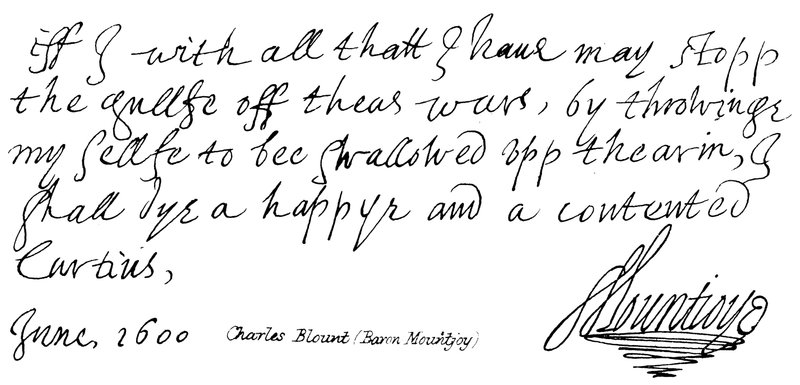 iff I with all thatt I haue may stopp
the gullfe off theas wars, by throwinge
my sellfe to bee swallowed upp thearin, I
shall dye a happye and a contented
Curtius,
Mountjoye
June, 1600 Charles Blount (Baron Mountjoy)